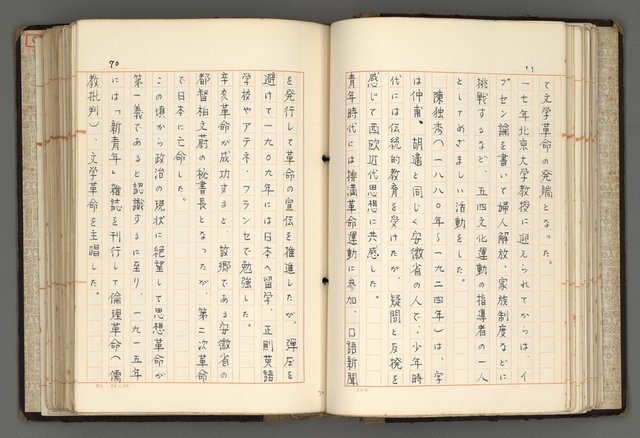 て文学革命の発端となった。
一七年北京大学教授に迎えられてからは、イ
プセン論を書いて婦人解放、家族制度などに
挑戦するなど、五四文化運動の指導者の一人
としてめざましい活動をした。
陳独秀(一八八〇年〜一九二四年)は、字
は仲甫、胡適と同じく安徽省の人で、少年時
代には伝統的教育を受けたが、疑問と反撥を
感じて西欧近代思想に共感した。
青年時代には排満革命運動に参加、口語新聞
70
を発行して革命の宣伝を推進したが、弾圧を
避けて一九〇九年には日本へ留学、正則英語
学校やアテネ・フランセで勉強した。
辛亥革命が成功すると、故郷である安徽省の
都督柏文蔚の秘書長となったが、第二次革命
で日本に亡命した。
この頃から政治の現状に絶望して思想革命が
第一義であると認識するに至り、一九一五年
には「新青年」雑誌を刊行して倫理革命(儒
教批判)、文学革命を主唱した。